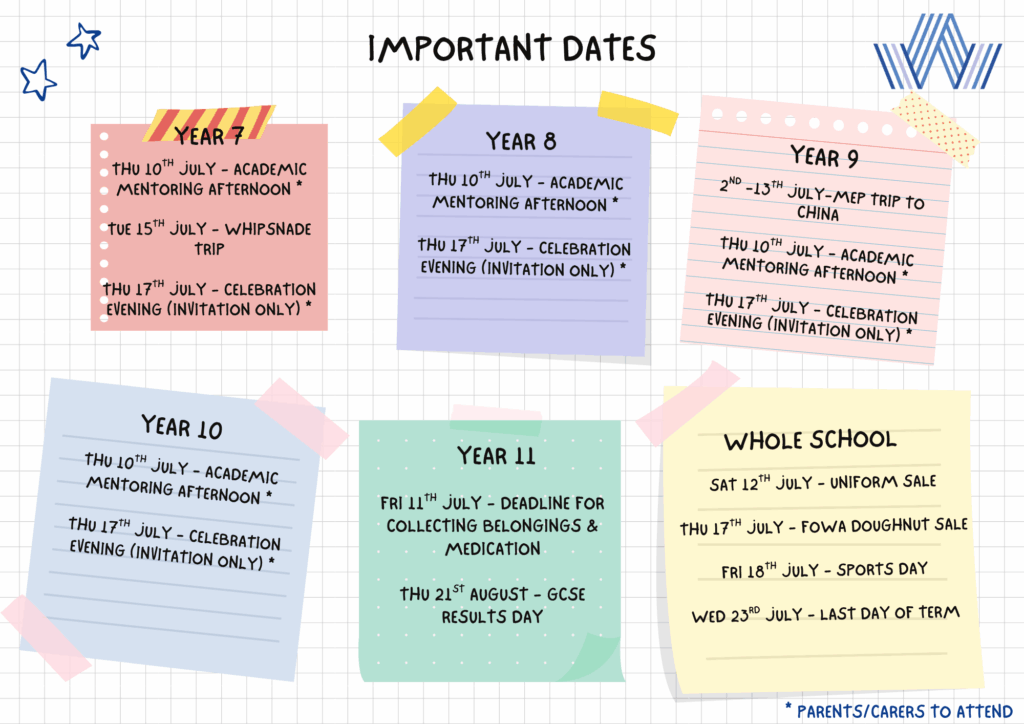 IMPORTANT DATES
YEAR 7
THU 10TH JULY - ACADEMIC
MENTORING AFTERNOON *
TUE 15TH JULY - WHIPSNADE
TRIP
THU 17TH JULY - CELEBRATION
EVENING (INVITATION ONLY) *
YEAR 8
THU 10TH JULY - ACADEMIC
MENTORING AFTERNOON *
THU 17TH JULY - CELEBRATION
EVENING (INVITATION ONLY) *
YEAR 9
2ND -13TH JULY-MEP TRIP TO
CHINA
THU 10TH JULY - ACADEMIC
MENTORING AFTERNOON *
THU 17TH JULY - CELEBRATION
EVENING (INVITATION ONLY) *
YEAR 10
THU 10TH JULY - ACADEMIC
MENTORING AFTERNOON *
THU 17TH JULY - CELEBRATION
EVENING (INVITATION ONLY) *
YEAR 11
FRI 11TH JULY - DEADLINE FOR
COLLECTING BELONGINGS &
MEDICATION
THU 21ST AUGUST - GCSE
RESULTS DAY
WHOLE SCHOOL
SAT 12TH JULY - UNIFORM SALE
THU 17TH JULY - FOWA DOUGHNUT SALE
FRI 18TH JULY - SPORTS DAY
WED 23RD JULY - LAST DAY OF TERM
* PARENTS/CARERS TO ATTEND